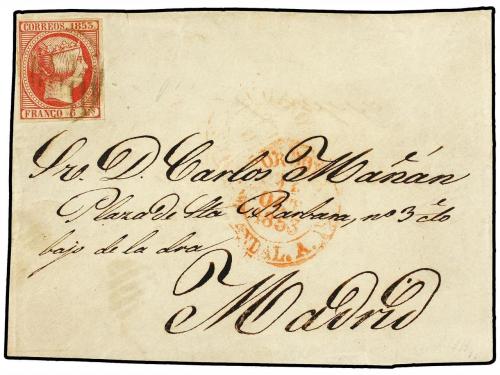 CORREOS. 1853.
FRANCO 6 Cs
Sr. D. Carlos Mañán
Plaza de Sta Barbara, nº 3 cto
bajo de la dra
Madrid
1853
ANDAL. A.